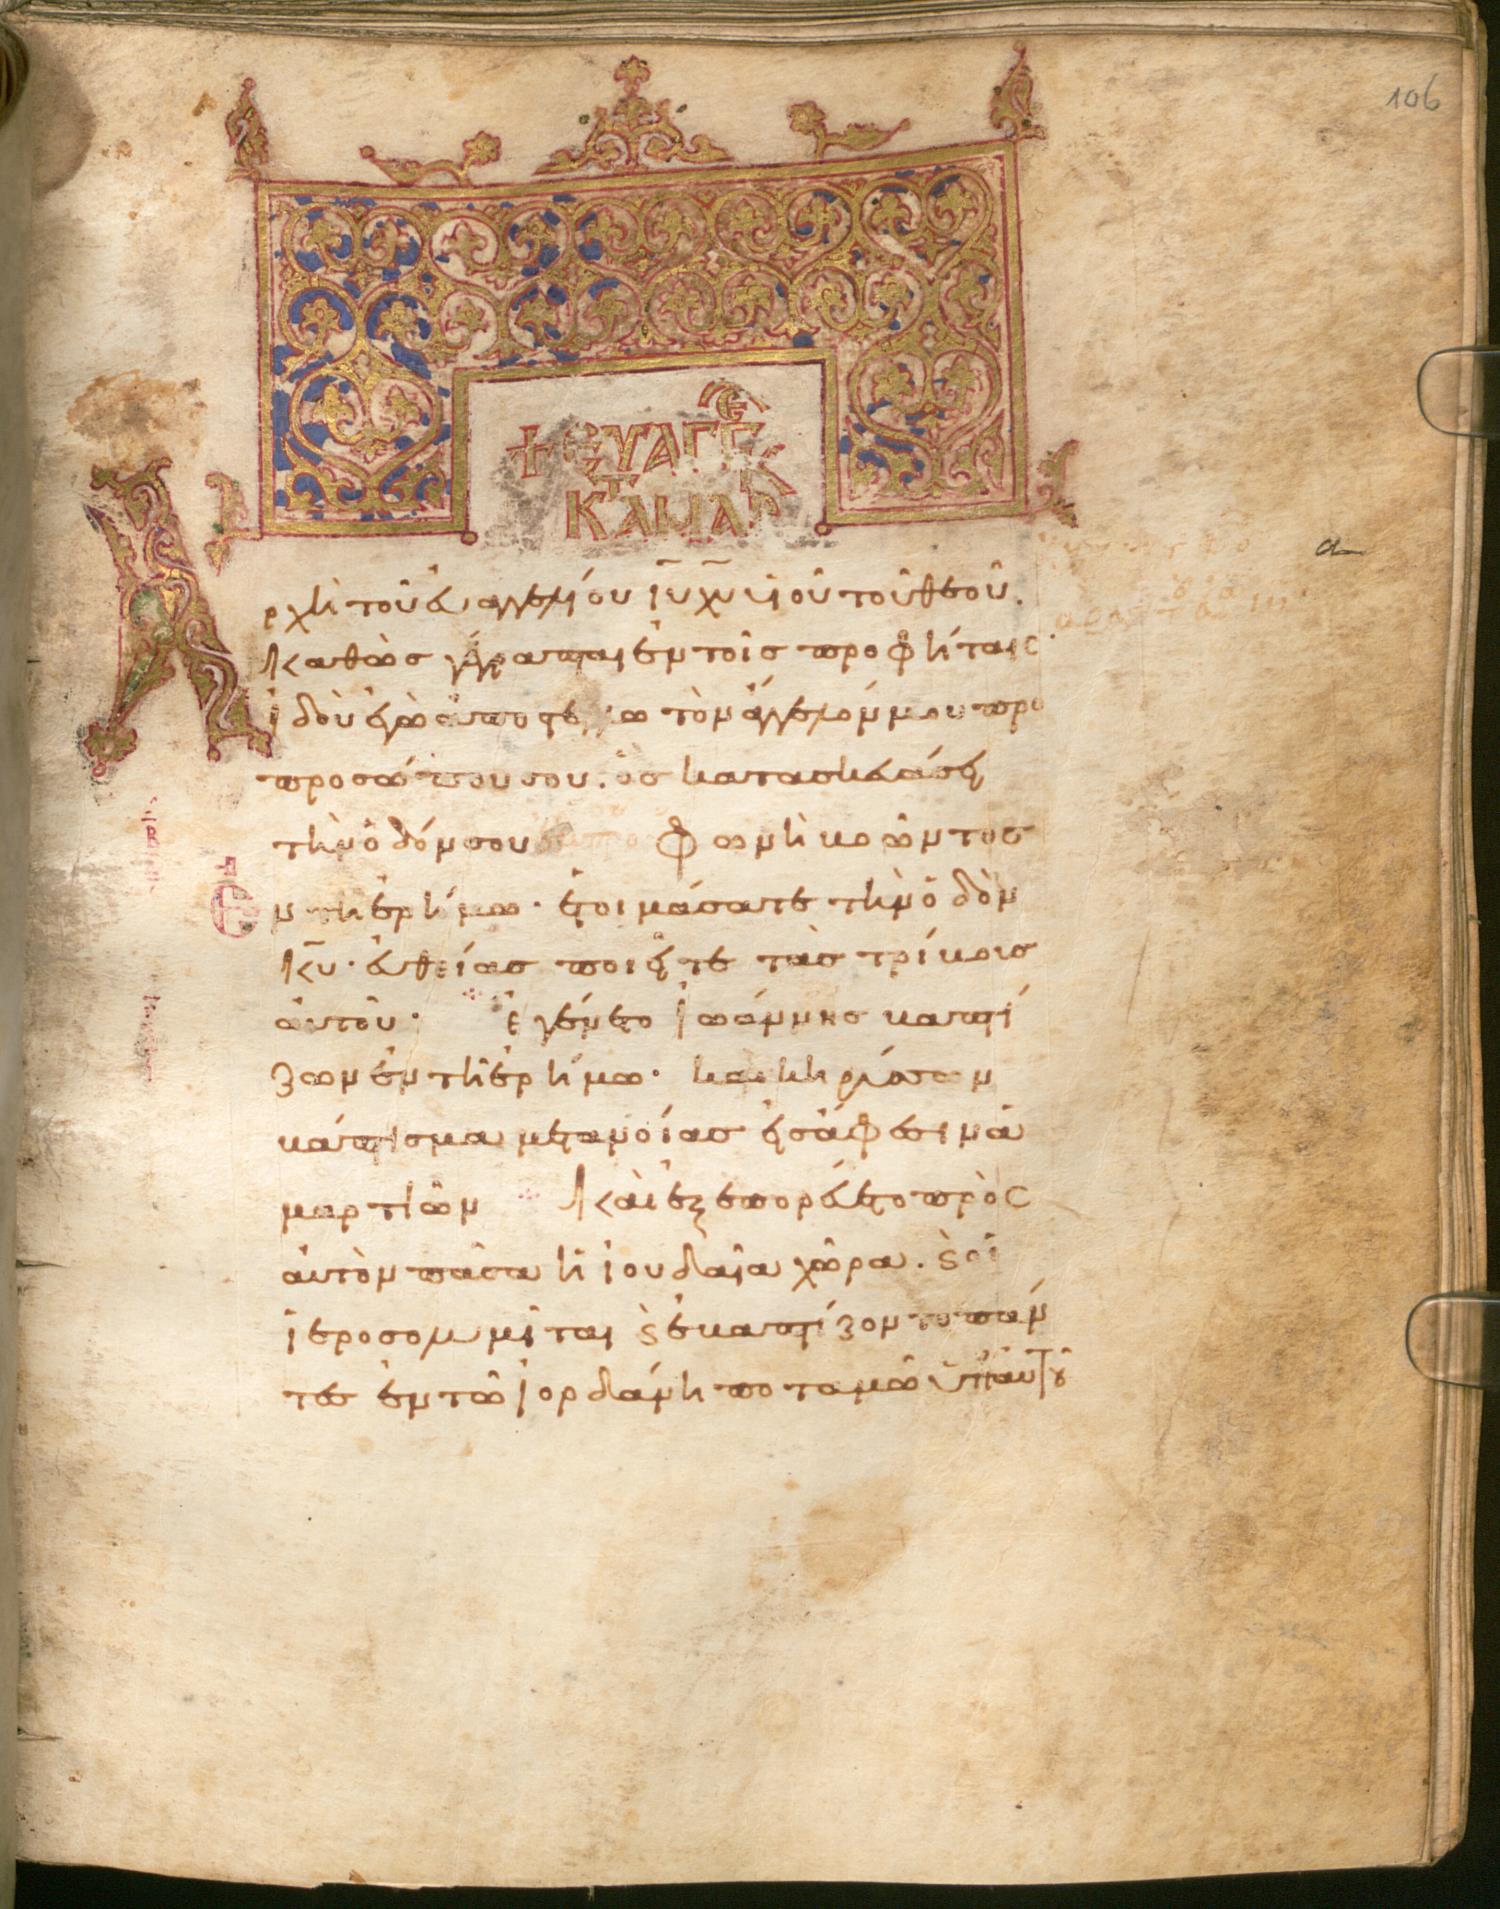 106
+ ΕΥΑΓΓΕ
ΚΑΤΑ ΜΑΡΚ
Α
ρχὴ τοῦ εὐαγγελίου ιυ χυ υἱοῦ τοῦ θεοῦ.
Καθὼς γέγραπται ἐν τοῖς προφήταις·
ἰδοὺ ἐγὼ ἀποστέλλω τὸν ἄγγελόν μου πρὸ
προσώπου σου. ὃς κατασκευάσει
τὴν ὁδόν σου φωνὴ βοῶντος
Ἐν τῆ ἐρήμω· ἑτοιμάσατε τὴν ὁδὸν
Κυ· εὐθείας ποιεῖτε τὰς τρίβους
αὐτοῦ· Ἐγένετο Ἰωάννης βαπτί
ζων ἐν τῆ ἐρήμω· καὶ κηρύσσων
βάπτισμα μετανοίας εἰς ἄφεσιν ἁ
μαρτιῶν Καὶ ἐξεπορεύετο πρὸς
αὐτὸν πᾶσα ἡ ἰουδαία χώρα. ϗ οἱ
ἱεροσολυμῖται ϗ ἐβαπτίζοντο πάν
τες ἐν τῶ ἰορδάνη ποταμῶ ὑπ αυτου